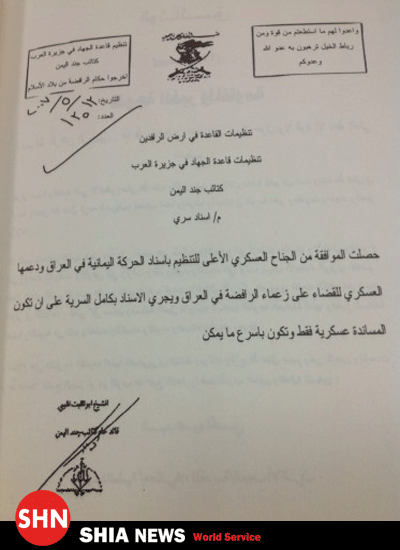 واعدوا لهم ما استطعتم من قوة ومن
رباط الخيل ترهبون به عدو الله
وعدوكم
تنظيم قاعدة الجهاد في جزيرة العرب
كتائب جند اليمن
اخرجوا حكام الرافضة من بلاد الاسلام
التاريخ:
العدد: ١٢٥
تنظيمات القاعدة في ارض الرافدين
تنظيمات قاعدة الجهاد في جزيرة العرب
كتائب جند اليمن
م/ اسناد سري
حصلت الموافقة من الجناح العسكري الأعلى للتنظيم باسناد الحركة اليمانية في العراق ودعمها
العسكري للقضاء على زعماء الرافضة في العراق ويجري الاسناد بكامل السرية على ان تكون
المساندة عسكرية فقط وتكون باسرع ما يمكن
الشيخ ابو الليث
قائد عام كتائب جند اليمن
SHN
SHIA NEWS World Service